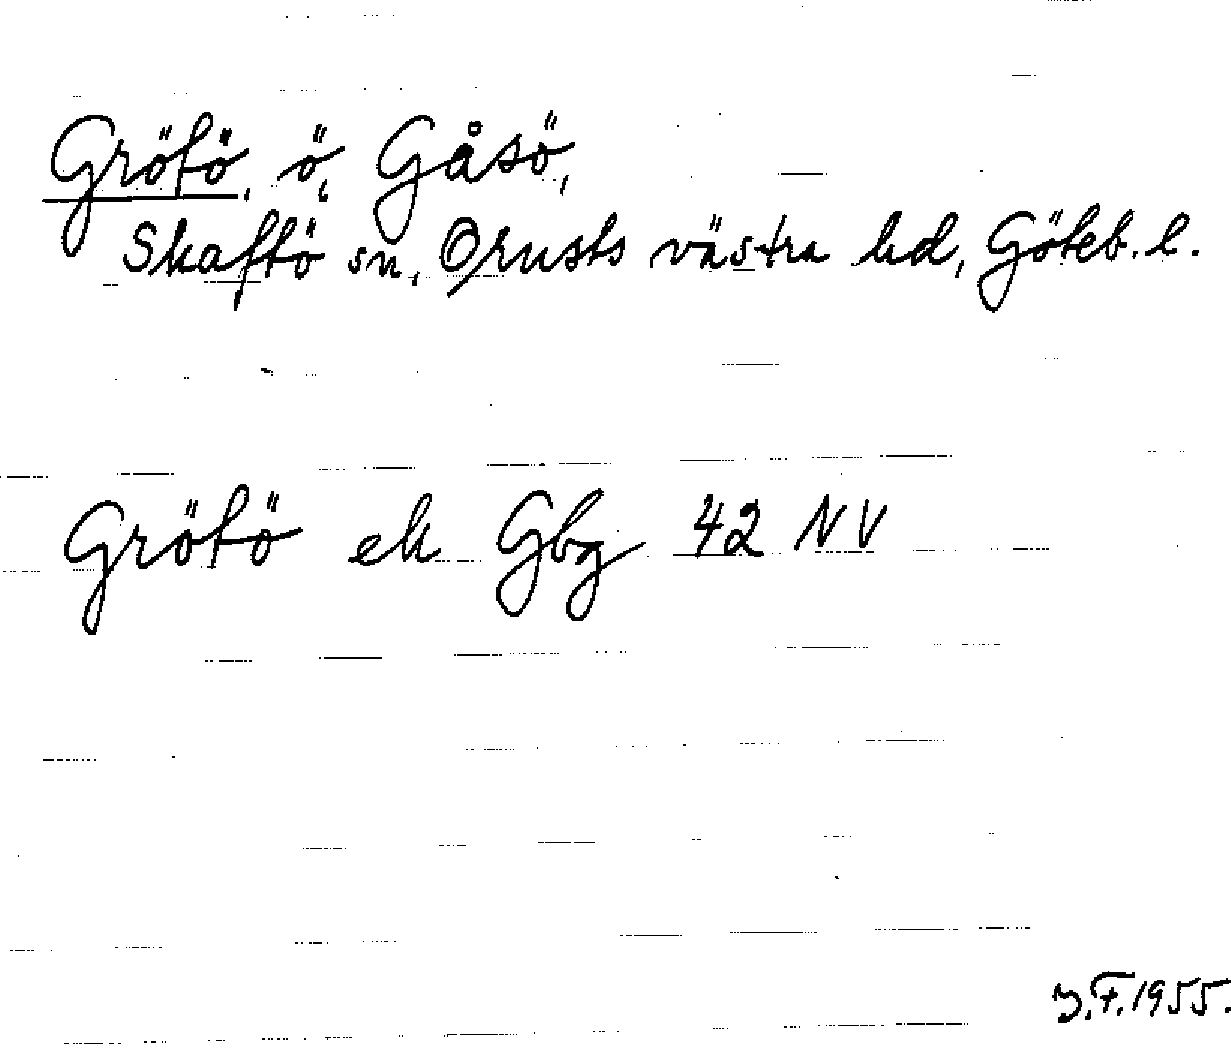 Grötö, ö, Gåsö,
Skaftö sn, Orusts västra hd, Göteb. l.
Grötö ek Gbg 42 NV
Y.F. 1955.